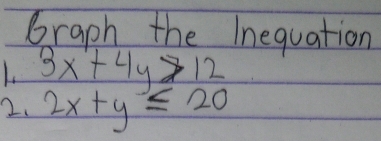 Graph the Inequation
1. 3x + 4y > 12
2. 2x + y ≤ 20